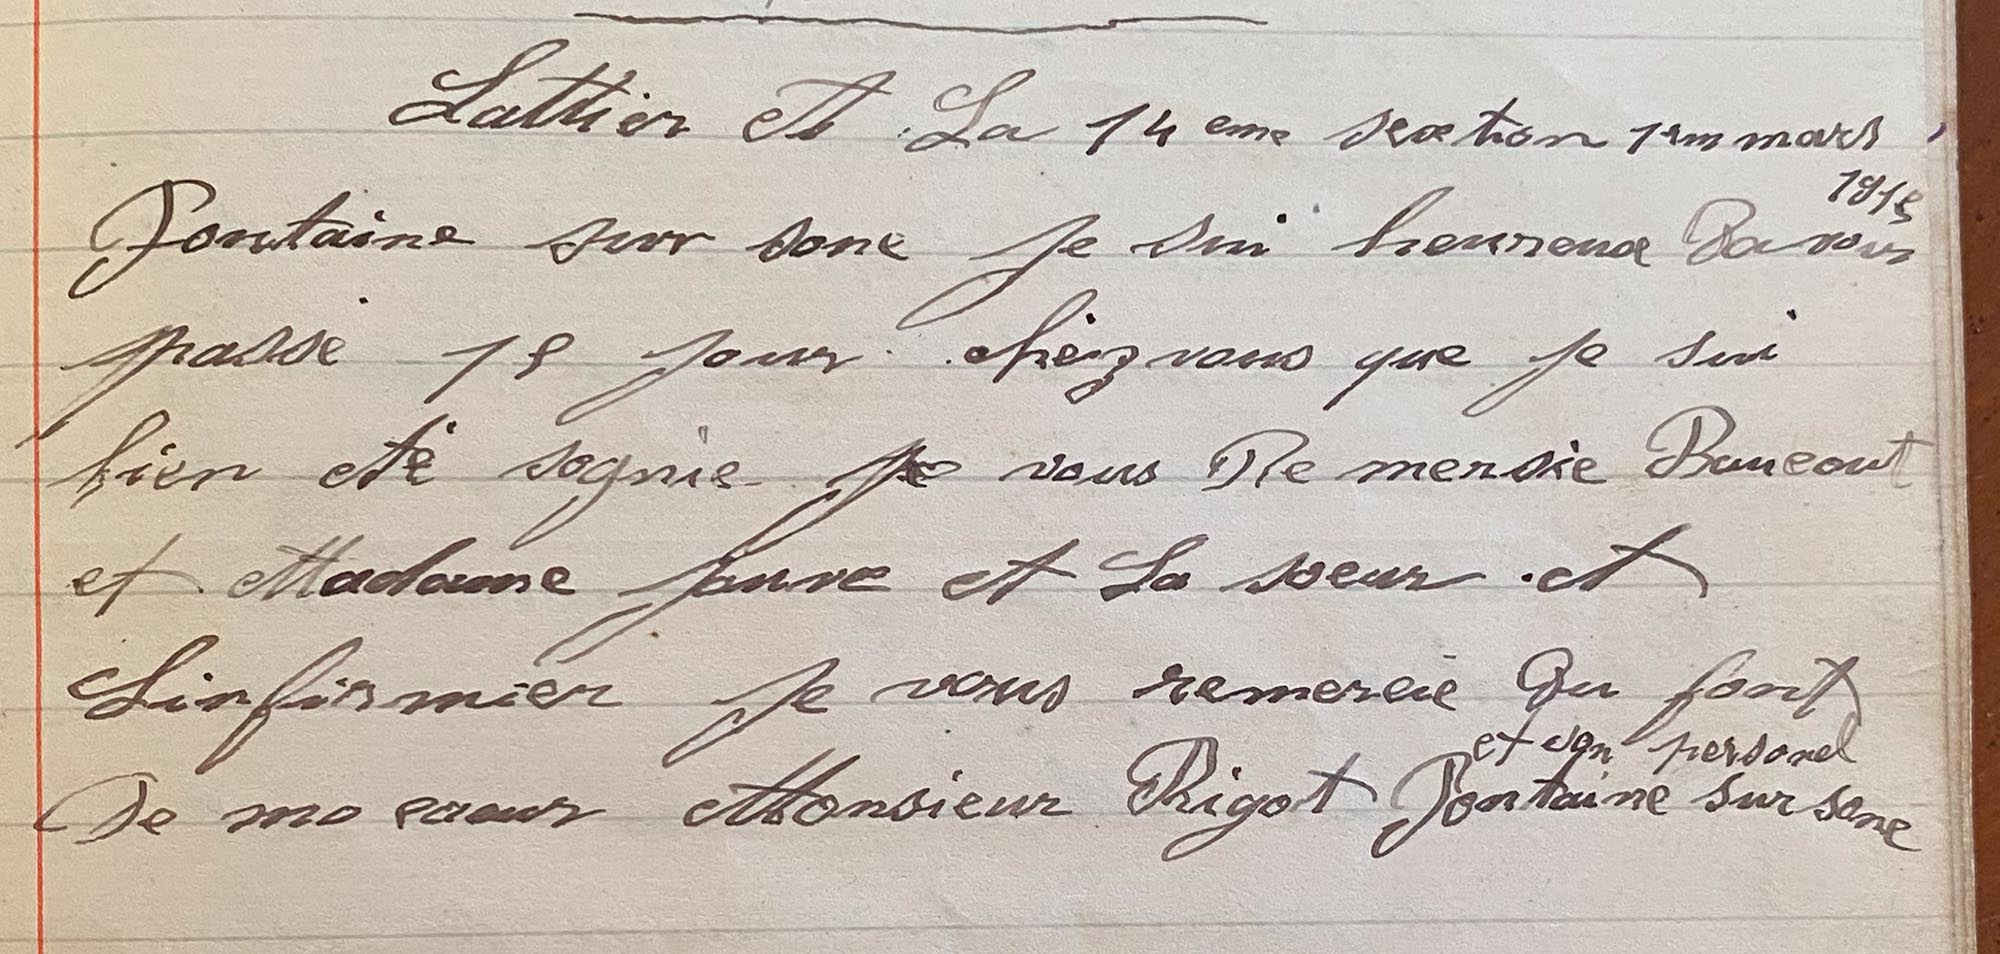 Lattier et La 14 eme sextion 1er mars
1915
Fontaine surr sone je sui heureux Davoir
passé 15 jour cheiz vous que je sui
bien eté sognie je vous Re mersie Baucout
et Madame faure et La soeur et
Linfirmier je vous remercie Du font
et son personel
De mo coeur Monsieur Rigot Fontaine sur sone